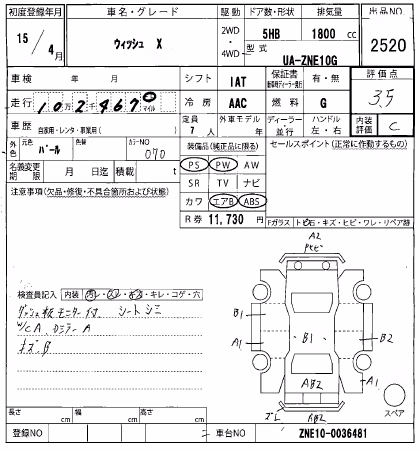 初度登録年月 車名・グレード 駆動 ドア数・形状 排気量 出品NO
15 / 4月 ウィッシュ X 2WD・4WD 5HB 1800 cc 2520
型式 UA-ZNE10G
車検 年 月 シフト IAT 保証書 有・無 評価点
3.5
走行 10 2 4 6 7 0 マイル 冷房 AAC 燃料 G
車歴 自家用・レンタ・事業用( ) 定員 7人 外車モデル 年 ディーラー・並行 ハンドル 左・右 内装評価 C
色 パール 元色 色替 カラーNO 070 装備品(純正品に限る) セールスポイント(正常に作動するもの)
PS PW AW
名義変更期限 月 日迄 積載 t SR TV ナビ
注意事項(欠品・修復・不具合箇所および状態) カワ エアB ABS
R券 11,730 円
Fガラス トビ石・キズ・ヒビ・ワレ・リペア跡
A2
検査員記入 内装 キレ・コゲ・穴
モニター付 シートシミ
A
キズ
B1 B1 B2
A1 A1
AB2
スペア
長さ cm 幅 cm 高さ cm
登録NO 車台NO ZNE10-0036481